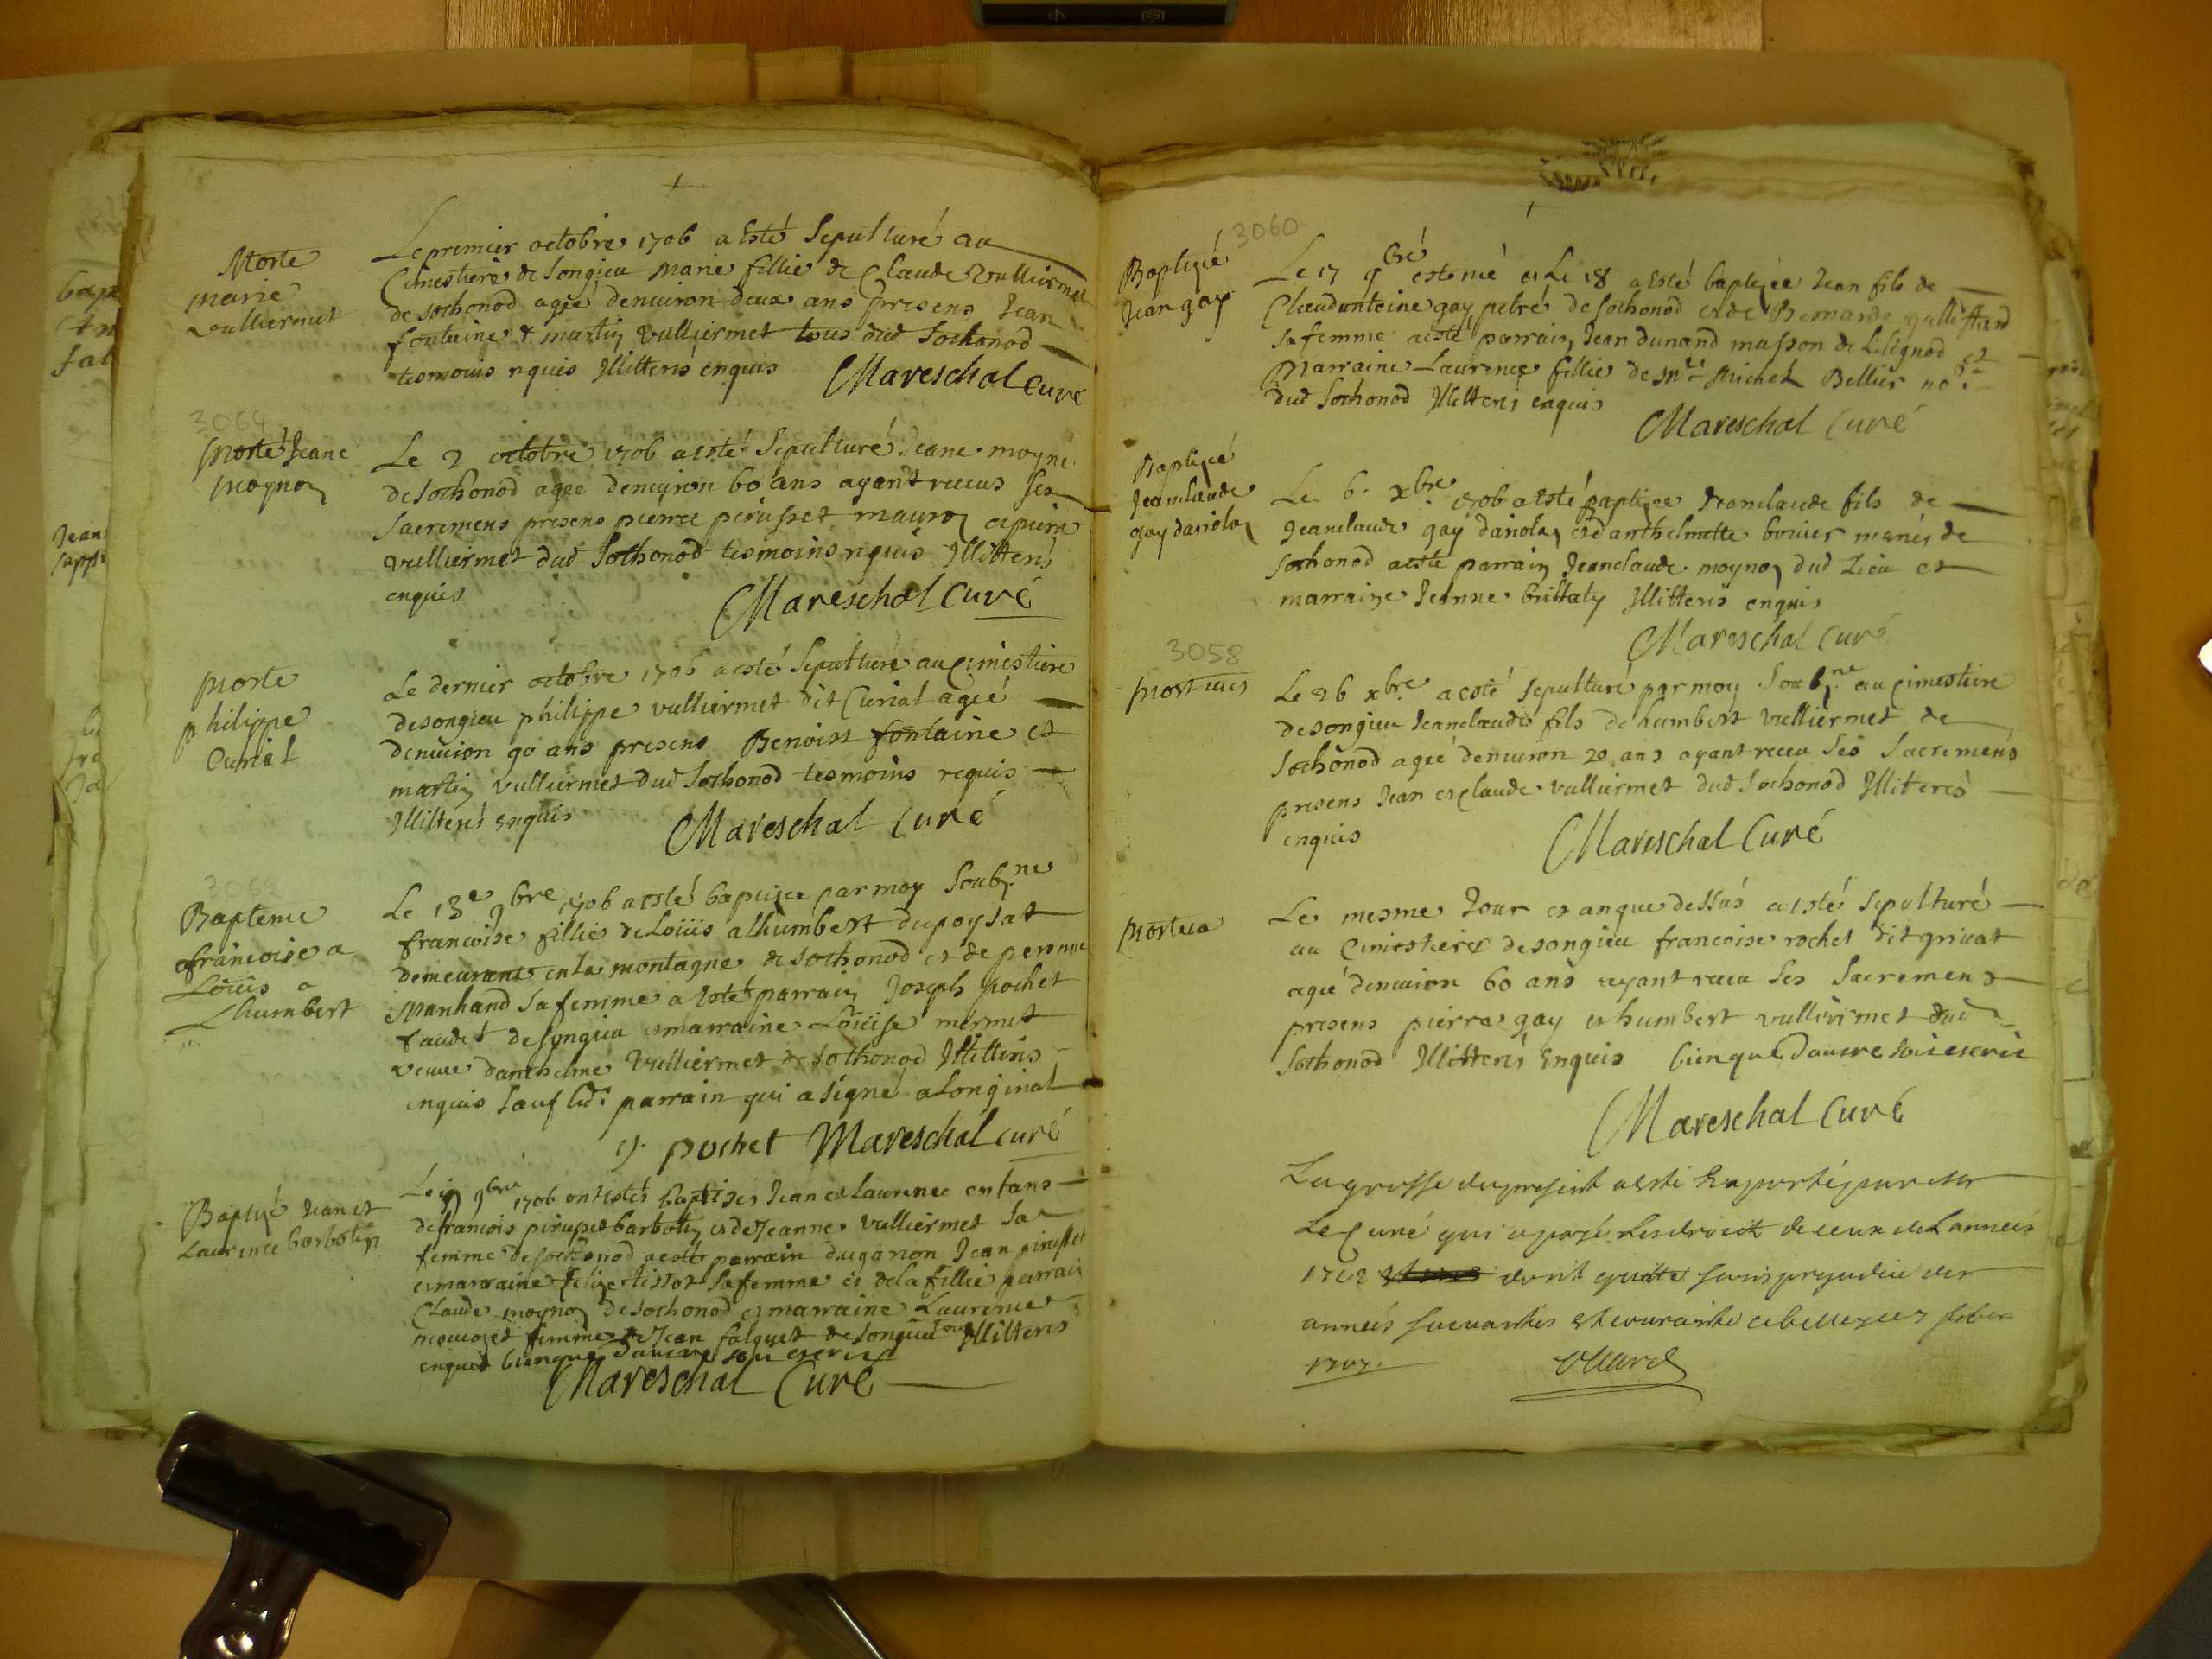 Morte
marie
vulliermet
Le premier octobre 1706 a esté Sepulturé au
Cimestiere de Songieu Marie fillie de Claude Vulliermet
de Sothonod agée denuiron deux ans presens Jean
fontaine & martin vulliermet tous dud Sothonod
tesmoins rquis Illitterés enquis Mareschal Curé
3064
morte Jeane
moynon
Le 2 octobre 1706 a esté Sepulturé Jeane moyne
de Sothonod agée denuiron 60 ans ayant receus ses
Sacremens presens pierre perusset mauron et pierre
vulliermet dud Sothonod tesmoins rquis Illitterés
enquis Mareschal Curé
morte
philippe
Curial
Le dernier octobre 1706 a esté Sepulturé au Cimestiere
de songieu philippe vulliermet dit Curial agée
denuiron 90 ans presens Benoist fontaine et
martin vulliermet dud Sothonod tesmoins requis
Illitterés enquis Mareschal Curé
3062
Bapteme
francoise a
Loüis a
Lhumbert
Le 13e 9bre 1706 a esté baptizée par moy Soubne
francoise fillie de Loüis alhumbert du poysat
demeurant en la montagne de sothonod et de peronne
Manhand sa femme a esté parrain Joseph pochet
de songieu et marraine Loüise mermet
veuue danthelme Vulliermet de Sothonod Illitterés
enquis sauf led. parrain qui a signé a Loriginal
J. pochet Mareschal curé
Baptizé Jean et
Laurence barbotin
Le 9bre 1706 ont estés baptisés Jean et Laurence enfans
de francois perusset barbotin et de Jeanne vulliermet sa
femme de Sothonod a esté parrain du garson Jean perusset
et marraine tissot sa femme et de la fillie parrain
Claude moynon de sothonod et marraine Laurence
femme de Jean falquet de songieu Illitterés
enquis bienque dautre soit escrit
Mareschal Curé
3060
Baptizé
Jean gay
Le 17 9bre est né et Le 18 a esté baptizée Jean fils de
Claudantoine gay petré de sothonod et de Bernarde
sa femme a esté parrain Jean dunand masson de Lilignod et
Marraine Laurence fillie de Mre Michel Bellier nore
dud Sothonod Illitterés enquis
Mareschal Curé
Baptizé
Jeanclaude
gay dariolan
Le 6. xbre 1706 a esté baptizee Jeanclaude fils de
Jeanclaude gay dariolan et danthelmette bouier mariés de
sothonod a esté parrain Jeanclaude moynon dud Lieu et
marraine Jeanne Illitterés enquis
Mareschal Curé
3058
mortuus
Le 26 xbre a esté sepulturé par moy Soubne au cimestiere
de songieu Jeanclaude fils de humbert vulliermet de
Sothonod agée denuiron 20 ans ayant receu ses Sacremens
presens Jean et claude vulliermet dud Sothonod Illiterés
enquis Mareschal Curé
mortua
Le mesme Jour et an que dessus a esté sepulturé
au Cimestiere de songieu francoise rochet dit griuat
agée denuiron 60 ans ayant receu ses Sacremens
presens pierre gay et humbert vulliermet dud
Sothonod Illitterés Enquis bienque dautre soit escrit
Mareschal Curé
La grosse du present a esté Raportée par
Le Curé qui a payé Les droits de ceux de Lannées
1702 dont quitte sans prejudice des
années suivantes et courante a belley
1707.